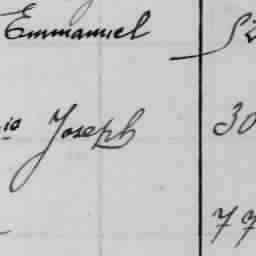 Emmanuel 52
io Joseph 30
79